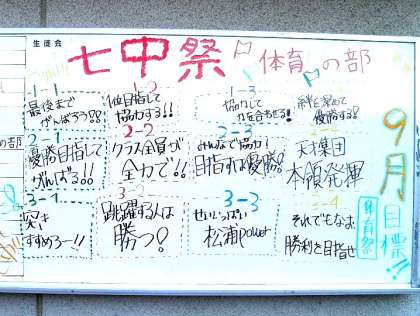 生徒会
七中祭 体育の部
1-1
最後まで
がんばろう!!
1-2
1位目指して
協力する!!
1-3
協力して
力を合わせる!
絆を深めて
優勝する!
2-1
優勝目指して
がんばる!!
2-2
クラス全員が
全力で!!
2-3
みんなで協力!
目指すは優勝!
天才集団
本領発揮
突き
すすめろー!!
3-2
跳躍する人は
勝つ?
3-3
せいいっぱい
松浦power
それでもなお
勝利を目指せ
9月
体育祭
目標!!
の部